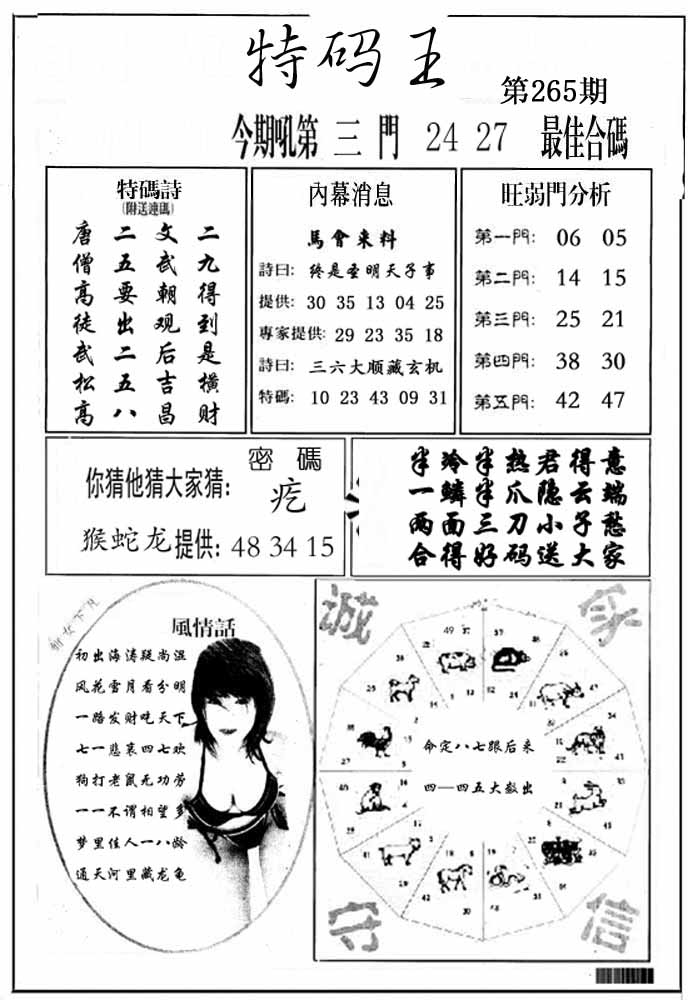 特码王
第265期
今期吼第 三 門 24 27 最佳合碼
特碼詩
(附送連碼)
唐僧高徒武松高
二五要出二五八
文武朝观后吉昌
二九得到是橫财
內幕消息
馬會来料
詩曰: 终是圣明天子事
提供: 30 35 13 04 25
專家提供: 29 23 35 18
詩曰: 三六大顺藏玄机
特碼: 10 23 43 09 31
旺弱門分析
第一門: 06 05
第二門: 14 15
第三門: 25 21
第四門: 38 30
第五門: 42 47
密碼
你猜他猜大家猜: 疙
猴蛇龙提供: 48 34 15
半冷半热君得意
一鳞半爪隐云端
两面三刀小子愁
合得好码送大家
仙女下凡
風情話
初出海涛疑尚湿
风花雪月看分明
一路发财吃天下
七一悲哀四七欢
狗打老鼠无功劳
一一不谓相望多
梦里佳人一八龄
通天河里藏龙龟
诚 家
命定八七跟后来
四一四五大数出
守 信